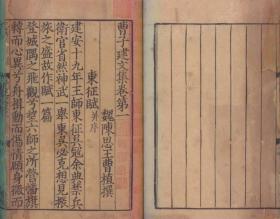 曹子建文集卷第一
魏陳思王曹植撰
東征賦 并序
建安十九年王師東征吳寇余典禁兵
衛官省然神武一舉東夷必克想見振
旅之盛故作賦一篇
登城隅之飛觀兮望六師之所營幡旗
轉而心異兮舟楫動而傷情顧身微而